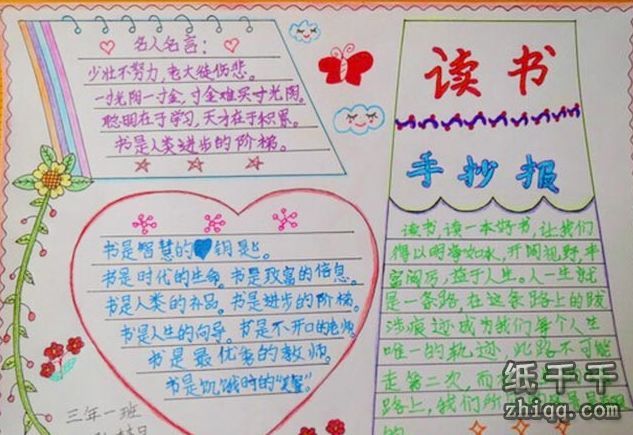 名人名言：
少壮不努力，老大徒伤悲。
一寸光阴一寸金，寸金难买寸光阴。
聪明在于学习，天才在于积累。
书是人类进步的阶梯。
书是智慧的钥匙。
书是时代的生命。书是致富的信息。
书是人类的补品。书是进步的阶梯。
书是人生的向导。书是不开口的老师。
书是最优秀的教师。
书是饥饿时的
三年一班
读书
手抄报
读书，读一本好书，让我们
得以明净如水，开阔视野，丰
富阅历，益于人生。人一生就
是一条路，在这条路上的跋
涉痕迹成为我们每个人生
唯一的轨迹，此路不可能
走第二次，而在
路上，我们所
的
纸千千
zhiqq.com